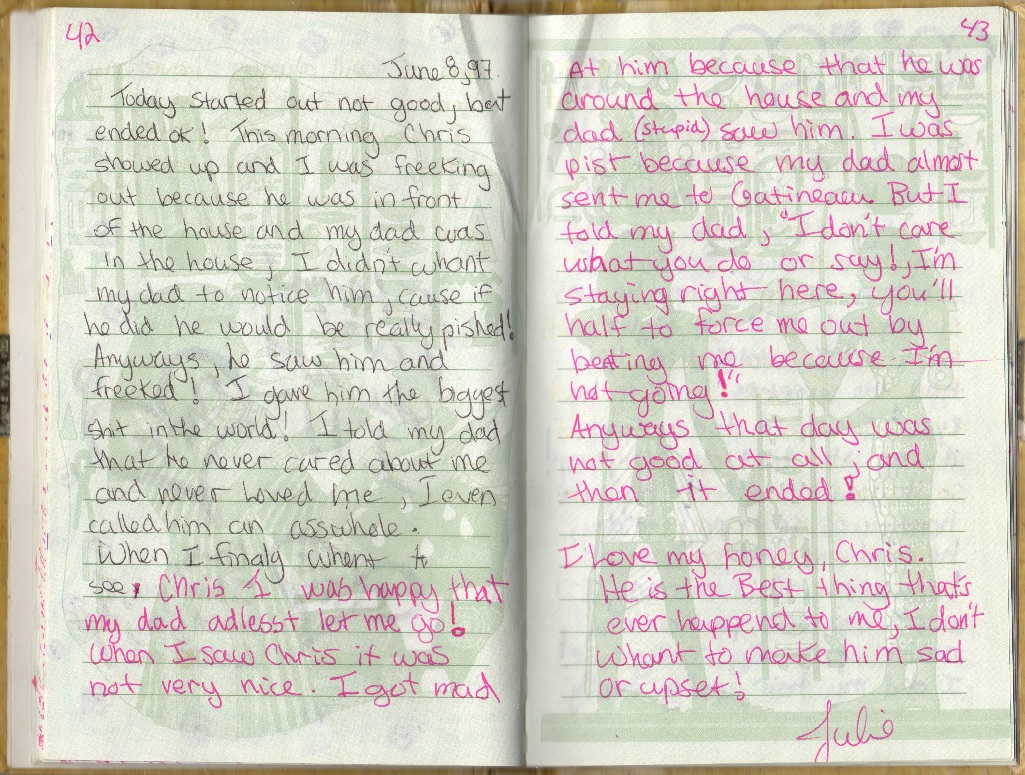 42
June 8, 97.
Today started out not good, but
ended ok! This morning Chris
showed up and I was freeking
out because he was in front
of the house and my dad was
in the house, I didn't whant
my dad to notice him, cause if
he did he would be really pished!
Anyways, he saw him and
freeked! I gave him the biggest
shit in the world! I told my dad
that he never cared about me
and never loved me, I even
called him an asswhole.
When I finaly whent to
see, Chris I was happy that
my dad adlesst let me go!
When I saw Chris it was
not very nice. I got mad
43
At him because that he was
around the house and my
dad (stupid) saw him. I was
pist because my dad almost
sent me to Gatineau. But I
told my dad, "I don't care
what you do or say!, I'm
staying right here, you'll
half to force me out by
beating me because I'm
not going!"
Anyways that day was
not good at all, and
then it ended!
I Love my honey, Chris.
He is the Best thing that's
ever happend to me, I don't
whant to make him sad
or upset!
Julie